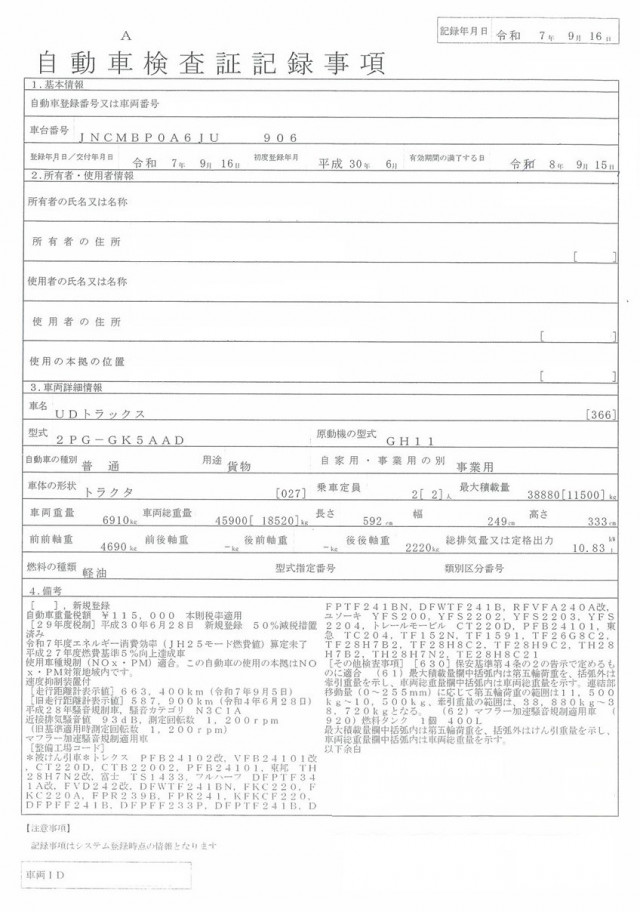 A
記録年月日 令和 7年 9月 16日
自動車検査証記録事項
1.基本情報
自動車登録番号又は車両番号
車台番号 JNCMBP0A6JU 906
登録年月日/交付年月日 令和 7年 9月 16日 初度登録年月 平成 30年 6月 有効期間の満了する日 令和 8年 9月 15日
2.所有者・使用者情報
所有者の氏名又は名称
所有者の住所
[ ]
使用者の氏名又は名称
使用者の住所
[ ]
使用の本拠の位置
[ ]
3.車両詳細情報
車名 UDトラックス [366]
型式 2PG-GK5AAD 原動機の型式 GH11
自動車の種別 普通 用途 貨物 自家用・事業用の別 事業用
車体の形状 トラクタ [027] 乗車定員 2[ 2]人 最大積載量 38880[11500]kg
車両重量 6910kg 車両総重量 45900[ 18520]kg 長さ 592cm 幅 249cm 高さ 333cm
前前軸重 4690kg 前後軸重 -kg 後前軸重 -kg 後後軸重 2220kg 総排気量又は定格出力 10.83 kW L
燃料の種類 軽油 型式指定番号 類別区分番号
4.備考
[ ],新規登録
自動車重量税額 ¥115,000 本則税率適用
[29年度税制]平成30年6月28日 新規登録 50%減税措置
済み
令和7年度エネルギー消費効率(JH25モード燃費値)算定未了
平成27年度燃費基準5%向上達成車
使用車種規制(NOx・PM)適合,この自動車の使用の本拠はNO
x・PM対策地域内です。
速度抑制装置付
[走行距離計表示値]663,400km(令和7年9月5日)
[旧走行距離計表示値]587,900km(令和4年6月28日)
平成28年騒音規制車,騒音カテゴリ N3C1A
近接排気騒音値 93dB,測定回転数 1,200rpm
(旧基準適用時測定回転数 1,200rpm)
マフラー加速騒音規制適用車
[整備工場コード]
*被けん引車*トレクス PFB24102改,VFB24101改
,CT220D,CTB22002,PFB24101,東邦 TH
28H7N2改,富士 TS1433,フルハーフ DFPTF34
1A改,FVD242改,DFWTF241BN,FKC220,F
KC220A,FPR239B,FPR241,KFKCF220,
DFPFF241B,DFPFF233P,DFPTF241B,D
FPTF241BN,DFWTF241B,RFVFA240A改,
ユソーキ YFS200,YFS2202,YFS2203,YFS
2204,トレールモービル CT220D,PFB24101,東
急 TC204,TF152N,TF1591,TF26G8C2,
TF28H7B2,TF28H8C2,TF28H9C2,TH28
H7B2,TH28H7N2,TE28H8C21
[その他検査事項] [630]保安基準第4条の2の告示で定めるも
のに適合 (61)最大積載量欄中括弧内は第五輪荷重を、括弧外は
牽引重量を示し、車両総重量欄中括弧内は車両総重量を示す。連結部
移動量(0~255mm)に応じて第五輪荷重の範囲は11,500
kg~10,500kg、牽引重量の範囲は、38,880kg~3
8,720kgとなる。 (62)マフラー加速騒音規制適用車 (
920)燃料タンク 1個 400L
最大積載量欄中括弧内は第五輪荷重を、括弧外はけん引重量を示し、
車両総重量欄中括弧内は車両総重量を示す。
以下余白
[注意事項]
記録事項はシステム登録時点の情報となります
車両ID